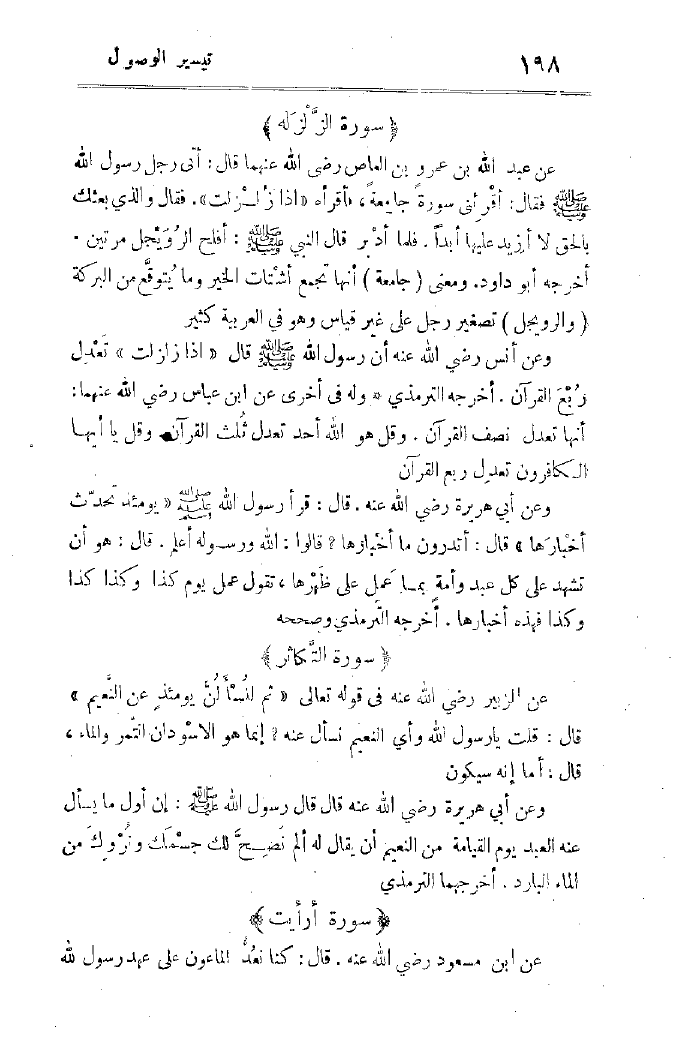 ١٩٨ تيسير الوصول
﴿ سورة الزَّلْزلة ﴾
عن عبد الله بن عمرو بن العاص رضى الله عنهما قال: أتى رجل رسول الله
ﷺ فقال: أقْرِأنى سورةً جامعةً، فأقرأه «اذا زُلْزلت». فقال والذي بعثك
بالحق لا أزيد عليها أبداً. فلما أدْبر قال النبي ﷺ : أفلح الرُوَيْجل مرتين .
أخرجه أبو داود. ومعنى ( جامعة ) أنها تجمع أشتات الخير وما يُتوقَّع من البركة
( والرويجل ) تصغير رجل على غير قياس وهو في العربية كثير
وعن أنس رضي الله عنه أن رسول الله ﷺ قال « اذا زلزلت » تَعْدل
رُبْعَ القرآن . أخرجه الترمذي * وله فى أخرى عن ابن عباس رضي الله عنهما:
أنها تعدل نصف القرآن . وقل هو الله أحد تعدل ثُلث القرآن . وقل يا أيها
الكافرون تعدل ربع القرآن
وعن أبي هريرة رضي الله عنه . قال : قرأ رسول الله ﷺ « يومئذ تحدّث
أخبارَها » قال : أتدرون ما أخْبارها ؟ قالوا : الله ورسوله أعلم . قال : هو أن
تشهد على كل عبد وأمةٍ بما عَمل على ظَهْرها ، تقول عمل يوم كذا وكذا كذا
وكذا فهذه أخبارها . أخرجه الترمذي وصححه
﴿ سورة التَّكاثر ﴾
عن الزبير رضي الله عنه فى قوله تعالى « ثم لتُسْأَلُنَّ يومئذٍ عن النَّعيم »
قال : قلت يارسول الله وأي النعيم نسأل عنه ؟ إنما هو الاسْودان التّمر والماء ،
قال : أما إنه سيكون
وعن أبي هريرة رضي الله عنه قال قال رسول الله ﷺ : إن أول ما يسأل
عنه العبد يوم القيامة من النعيم أن يقال له ألم نَصِحَّ لك جسْمك ونُرْوكَ من
الماء البارد . أخرجهما الترمذي
﴿ سورة أرأيت ﴾
عن ابن مسعود رضي الله عنه . قال : كنا نعُدُّ الماعون على عهد رسول لله